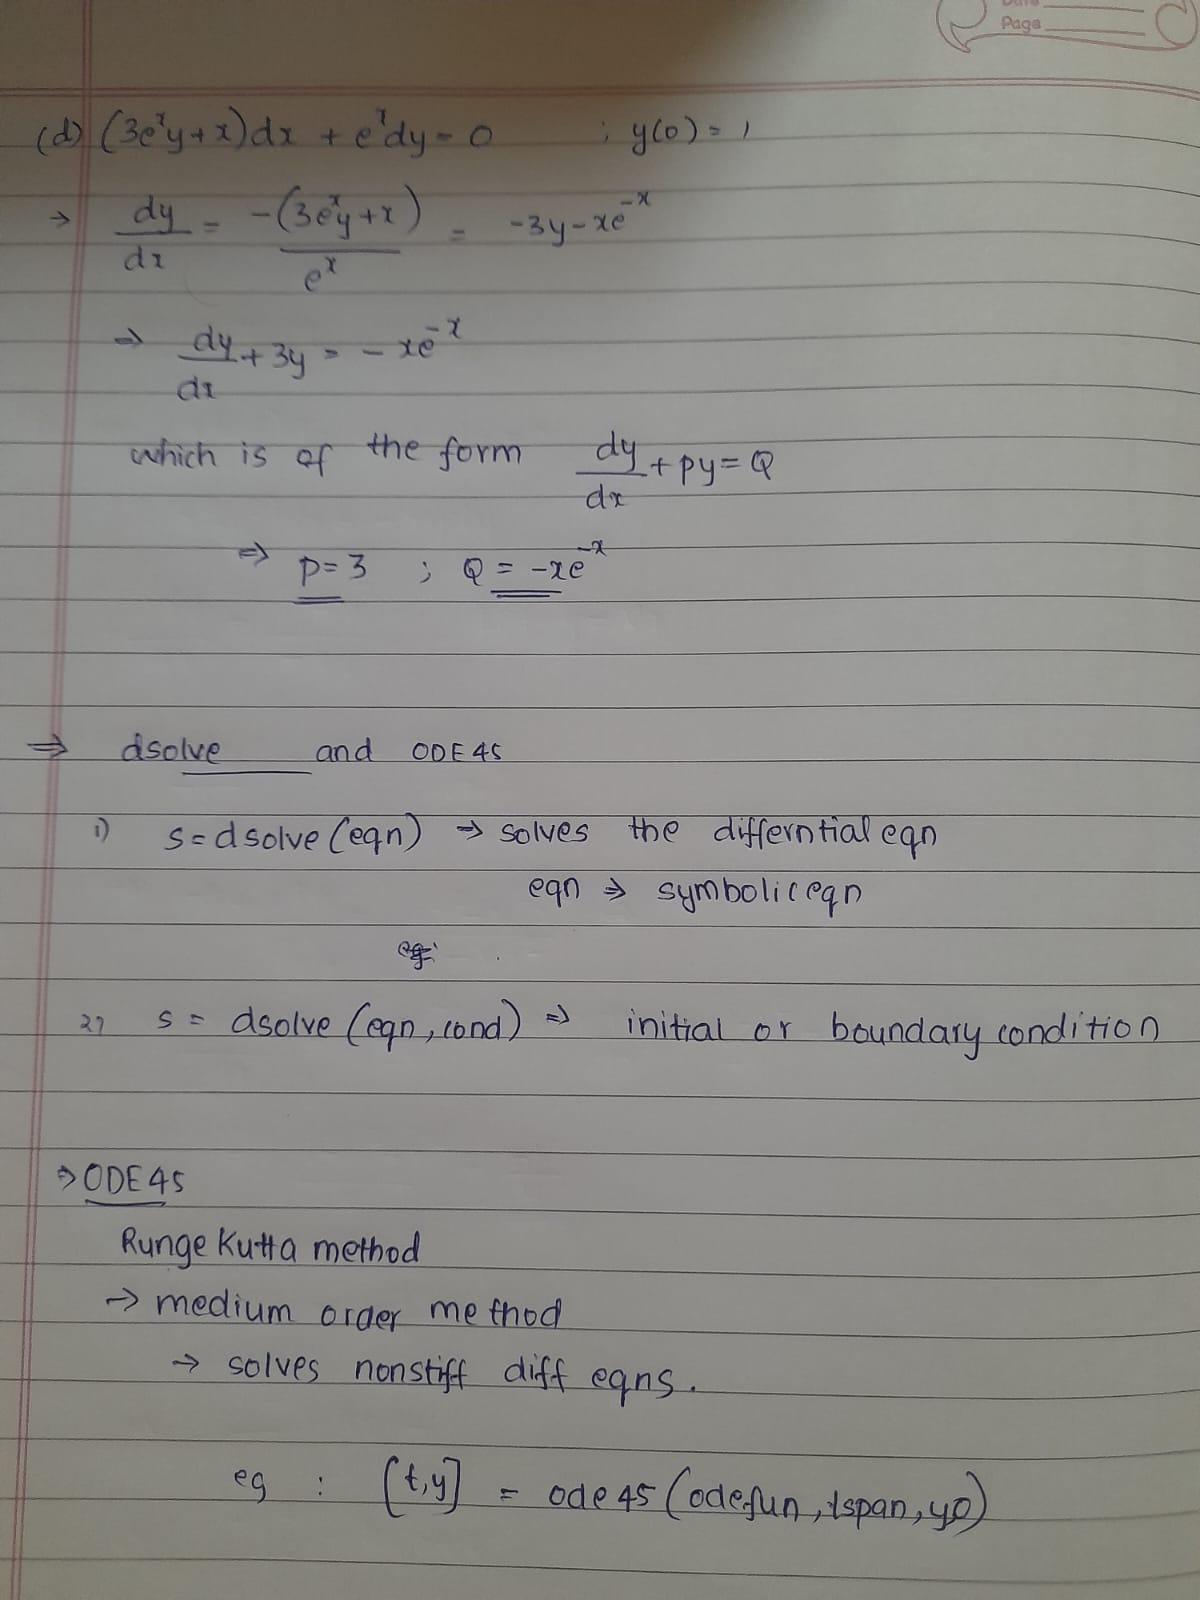 Date
Page
(d) (3eˣy+x)dx + eˣdy = 0 ; y(0) = 1
→ dy/dx = -(3eˣy+x)/eˣ = -3y-xe⁻ˣ
⇒ dy/dx + 3y = - xe⁻ˣ
which is of the form dy/dx + py = Q
⇒ p=3 ; Q = -xe⁻ˣ
⇒ dsolve and ODE45
1) s=dsolve(eqn) → solves the differntial eqn
eqn ⇒ symbolic eqn
2) s = dsolve(eqn,cond) ⇒ initial or boundary condition
→ ODE45
Runge Kutta method
→ medium order method
→ solves nonstiff diff eqns.
eg : [t,y] = ode45(odefun,tspan,y0)